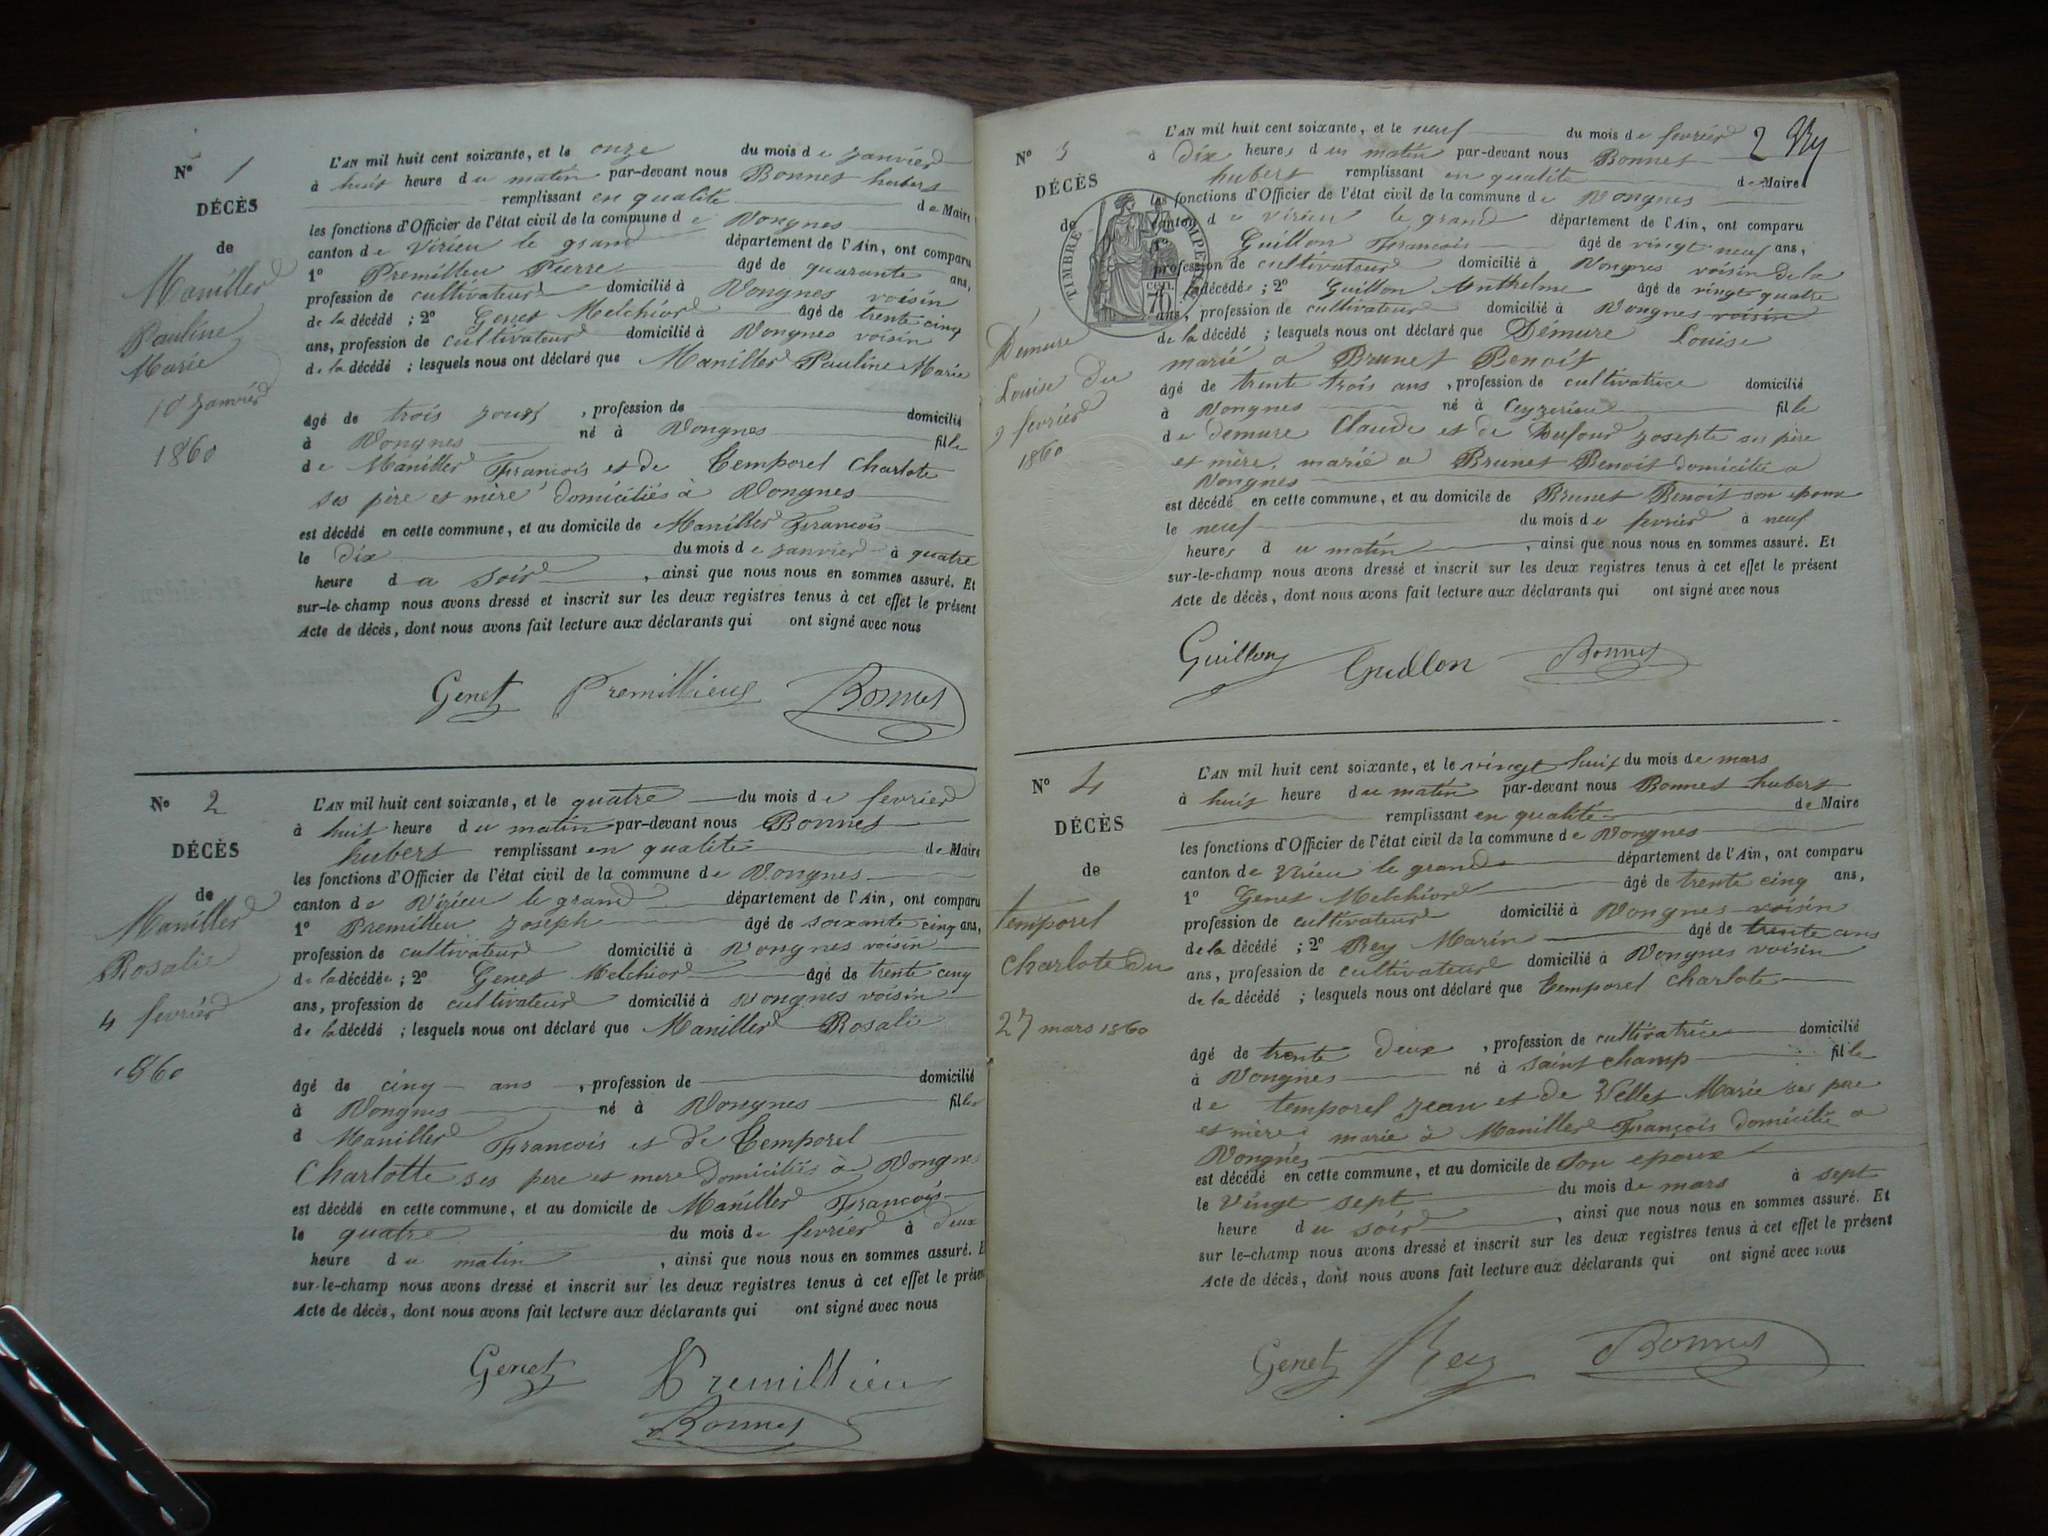 N° 1
DÉCÈS
de
Maniller
Pauline
Marie
10 janvier
1860
L'AN mil huit cent soixante, et le onze du mois de janvier
à huit heure du matin par-devant nous Bonnet hubert
remplissant en qualité de Maire
les fonctions d'Officier de l'état civil de la commune de Vongnes
canton de Virieu le grand département de l'Ain, ont comparu
1° Premillieu Pierre âgé de quarante ans,
profession de cultivateur domicilié à Vongnes voisin
de la décédé ; 2° Genet Melchior âgé de trente cinq
ans, profession de cultivateur domicilié à Vongnes voisin
de la décédé ; lesquels nous ont déclaré que Maniller Pauline Marie
âgé de trois jours , profession de domicilié
à Vongnes né à Vongnes fille
de Maniller François et de Temporel Charlote
ses père et mère domiciliés à Vongnes
est décédé en cette commune, et au domicile de Maniller François
le dix du mois de janvier à quatre
heure du soir , ainsi que nous nous en sommes assuré. Et
sur-le-champ nous avons dressé et inscrit sur les deux registres tenus à cet effet le présent
Acte de décès, dont nous avons fait lecture aux déclarants qui ont signé avec nous
Genet Premillieu Bonnet
N° 2
DÉCÈS
de
Maniller
Rosalie
4 fevrier
1860
L'AN mil huit cent soixante, et le quatre du mois de fevrier
à huit heure du matin par-devant nous Bonnet
hubert remplissant en qualité de Maire
les fonctions d'Officier de l'état civil de la commune de Vongnes
canton de Virieu le grand département de l'Ain, ont comparu
1° Premillieu Joseph âgé de soixante cinq ans,
profession de cultivateur domicilié à Vongnes voisin
de la décédée ; 2° Genet Melchior âgé de trente cinq
ans, profession de cultivateur domicilié à Vongnes voisin
de la décédé ; lesquels nous ont déclaré que Maniller Rosalie
âgé de cinq ans , profession de domicilié
à Vongnes né à Vongnes fille
d Maniller François et de Temporel
Charlotte ses pere et mere domiciliés à Vongnes
est décédé en cette commune, et au domicile de Maniller François
le quatre du mois de fevrier à deux
heure du matin , ainsi que nous nous en sommes assuré. Et
sur-le-champ nous avons dressé et inscrit sur les deux registres tenus à cet effet le présent
Acte de décès, dont nous avons fait lecture aux déclarants qui ont signé avec nous
Genet Premillieu
Bonnet
2
N° 3
DÉCÈS
de
TIMBRE IMPERIAL
70 cen.
Démure
Louise du
9 fevrier
1860
L'AN mil huit cent soixante, et le neuf du mois de fevrier
à dix heures du matin par-devant nous Bonnet
hubert remplissant en qualité de Maire
les fonctions d'Officier de l'état civil de la commune de Vongnes
canton de Virieu le grand département de l'Ain, ont comparu
1° Guillon François âgé de vingt neuf ans,
profession de cultivateur domicilié à Vongnes voisin de la
décédée ; 2° Guillon Anthelme âgé de vingt quatre
ans, profession de cultivateur domicilié à Vongnes voisin
de la décédé ; lesquels nous ont déclaré que Démure Louise
marié a Brunet Benoit
âgé de trente trois ans , profession de cultivatrice domicilié
à Vongnes né à Ceyzerieu fille
de demure Claude et de Dufour Josepte ses père
et mère, marié a Brunet Benoit domicilié a
Vongnes
est décédé en cette commune, et au domicile de Brunet Benoit son epoux
le neuf du mois de fevrier à neuf
heures du matin , ainsi que nous nous en sommes assuré. Et
sur-le-champ nous avons dressé et inscrit sur les deux registres tenus à cet effet le présent
Acte de décès, dont nous avons fait lecture aux déclarants qui ont signé avec nous
Guillon Guillon Bonnet
N° 4
DÉCÈS
de
temporel
charlote du
27 mars 1860
L'AN mil huit cent soixante, et le vingt huit du mois de mars
à huit heure du matin par-devant nous Bonnet hubert
remplissant en qualité de Maire
les fonctions d'Officier de l'état civil de la commune de Vongnes
canton de Virieu le grand département de l'Ain, ont comparu
1° Genet Melchior âgé de trente cinq ans,
profession de cultivateur domicilié à Vongnes voisin
de la décédé ; 2° Bey Marin âgé de trente ans
ans, profession de cultivateur domicilié à Vongnes voisin
de la décédé ; lesquels nous ont déclaré que Temporel Charlote
âgé de trente deux , profession de cultivatrice domicilié
à Vongnes né à saint champ fille
de temporel jean et de Vellet Marie ses pere
et mère, marié à Maniller François domicilié a
Vongnes
est décédé en cette commune, et au domicile de Son epoux
le Vingt sept du mois de mars à sept
heure du soir , ainsi que nous nous en sommes assuré. Et
sur le-champ nous avons dressé et inscrit sur les deux registres tenus à cet effet le présent
Acte de décès, dont nous avons fait lecture aux déclarants qui ont signé avec nous
Genet Bey Bonnet